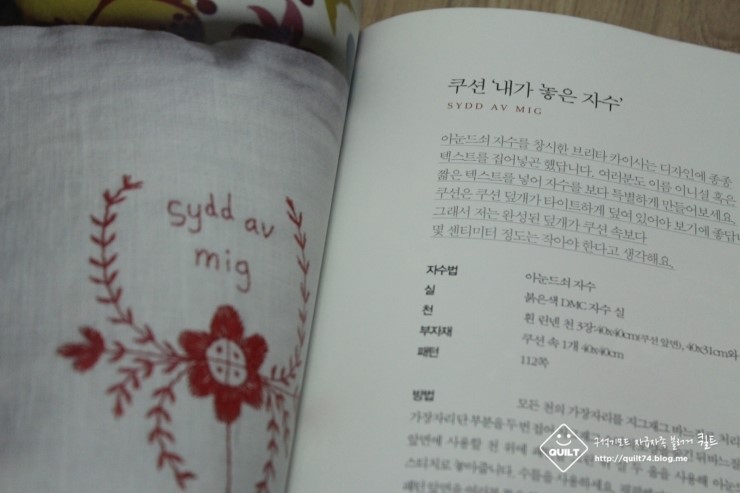 sydd av
mig
쿠션 '내가 놓은 자수'
SYDD AV MIG
아눈드쇠 자수를 창시한 브리타 카이사는 디자인에 종종
텍스트를 집어넣곤 했답니다. 여러분도 이름 이니셜 혹은
짧은 텍스트를 넣어 자수를 보다 특별하게 만들어보세요.
쿠션은 쿠션 덮개가 타이트하게 덮여 있어야 보기에 좋답니
그래서 저는 완성된 덮개가 쿠션 속보다
몇 센티미터 정도는 작아야 한다고 생각해요.
자수법 아눈드쇠 자수
실 붉은색 DMC 자수 실
천 흰 린넨 천 3장-40x40cm(쿠션 앞면), 40x31cm와
부자재 쿠션 속 1개 40x40cm
패턴 112쪽
방법
모든 천의 가장자리를 지그재그 바느질로 처리
가장자리단 부분을 두 번 접어
앞면에 사용할 천 위에
스티치로 놓아줍니다. 수틀을 사용하세요.
QUILT
http://quilt74.blog.me